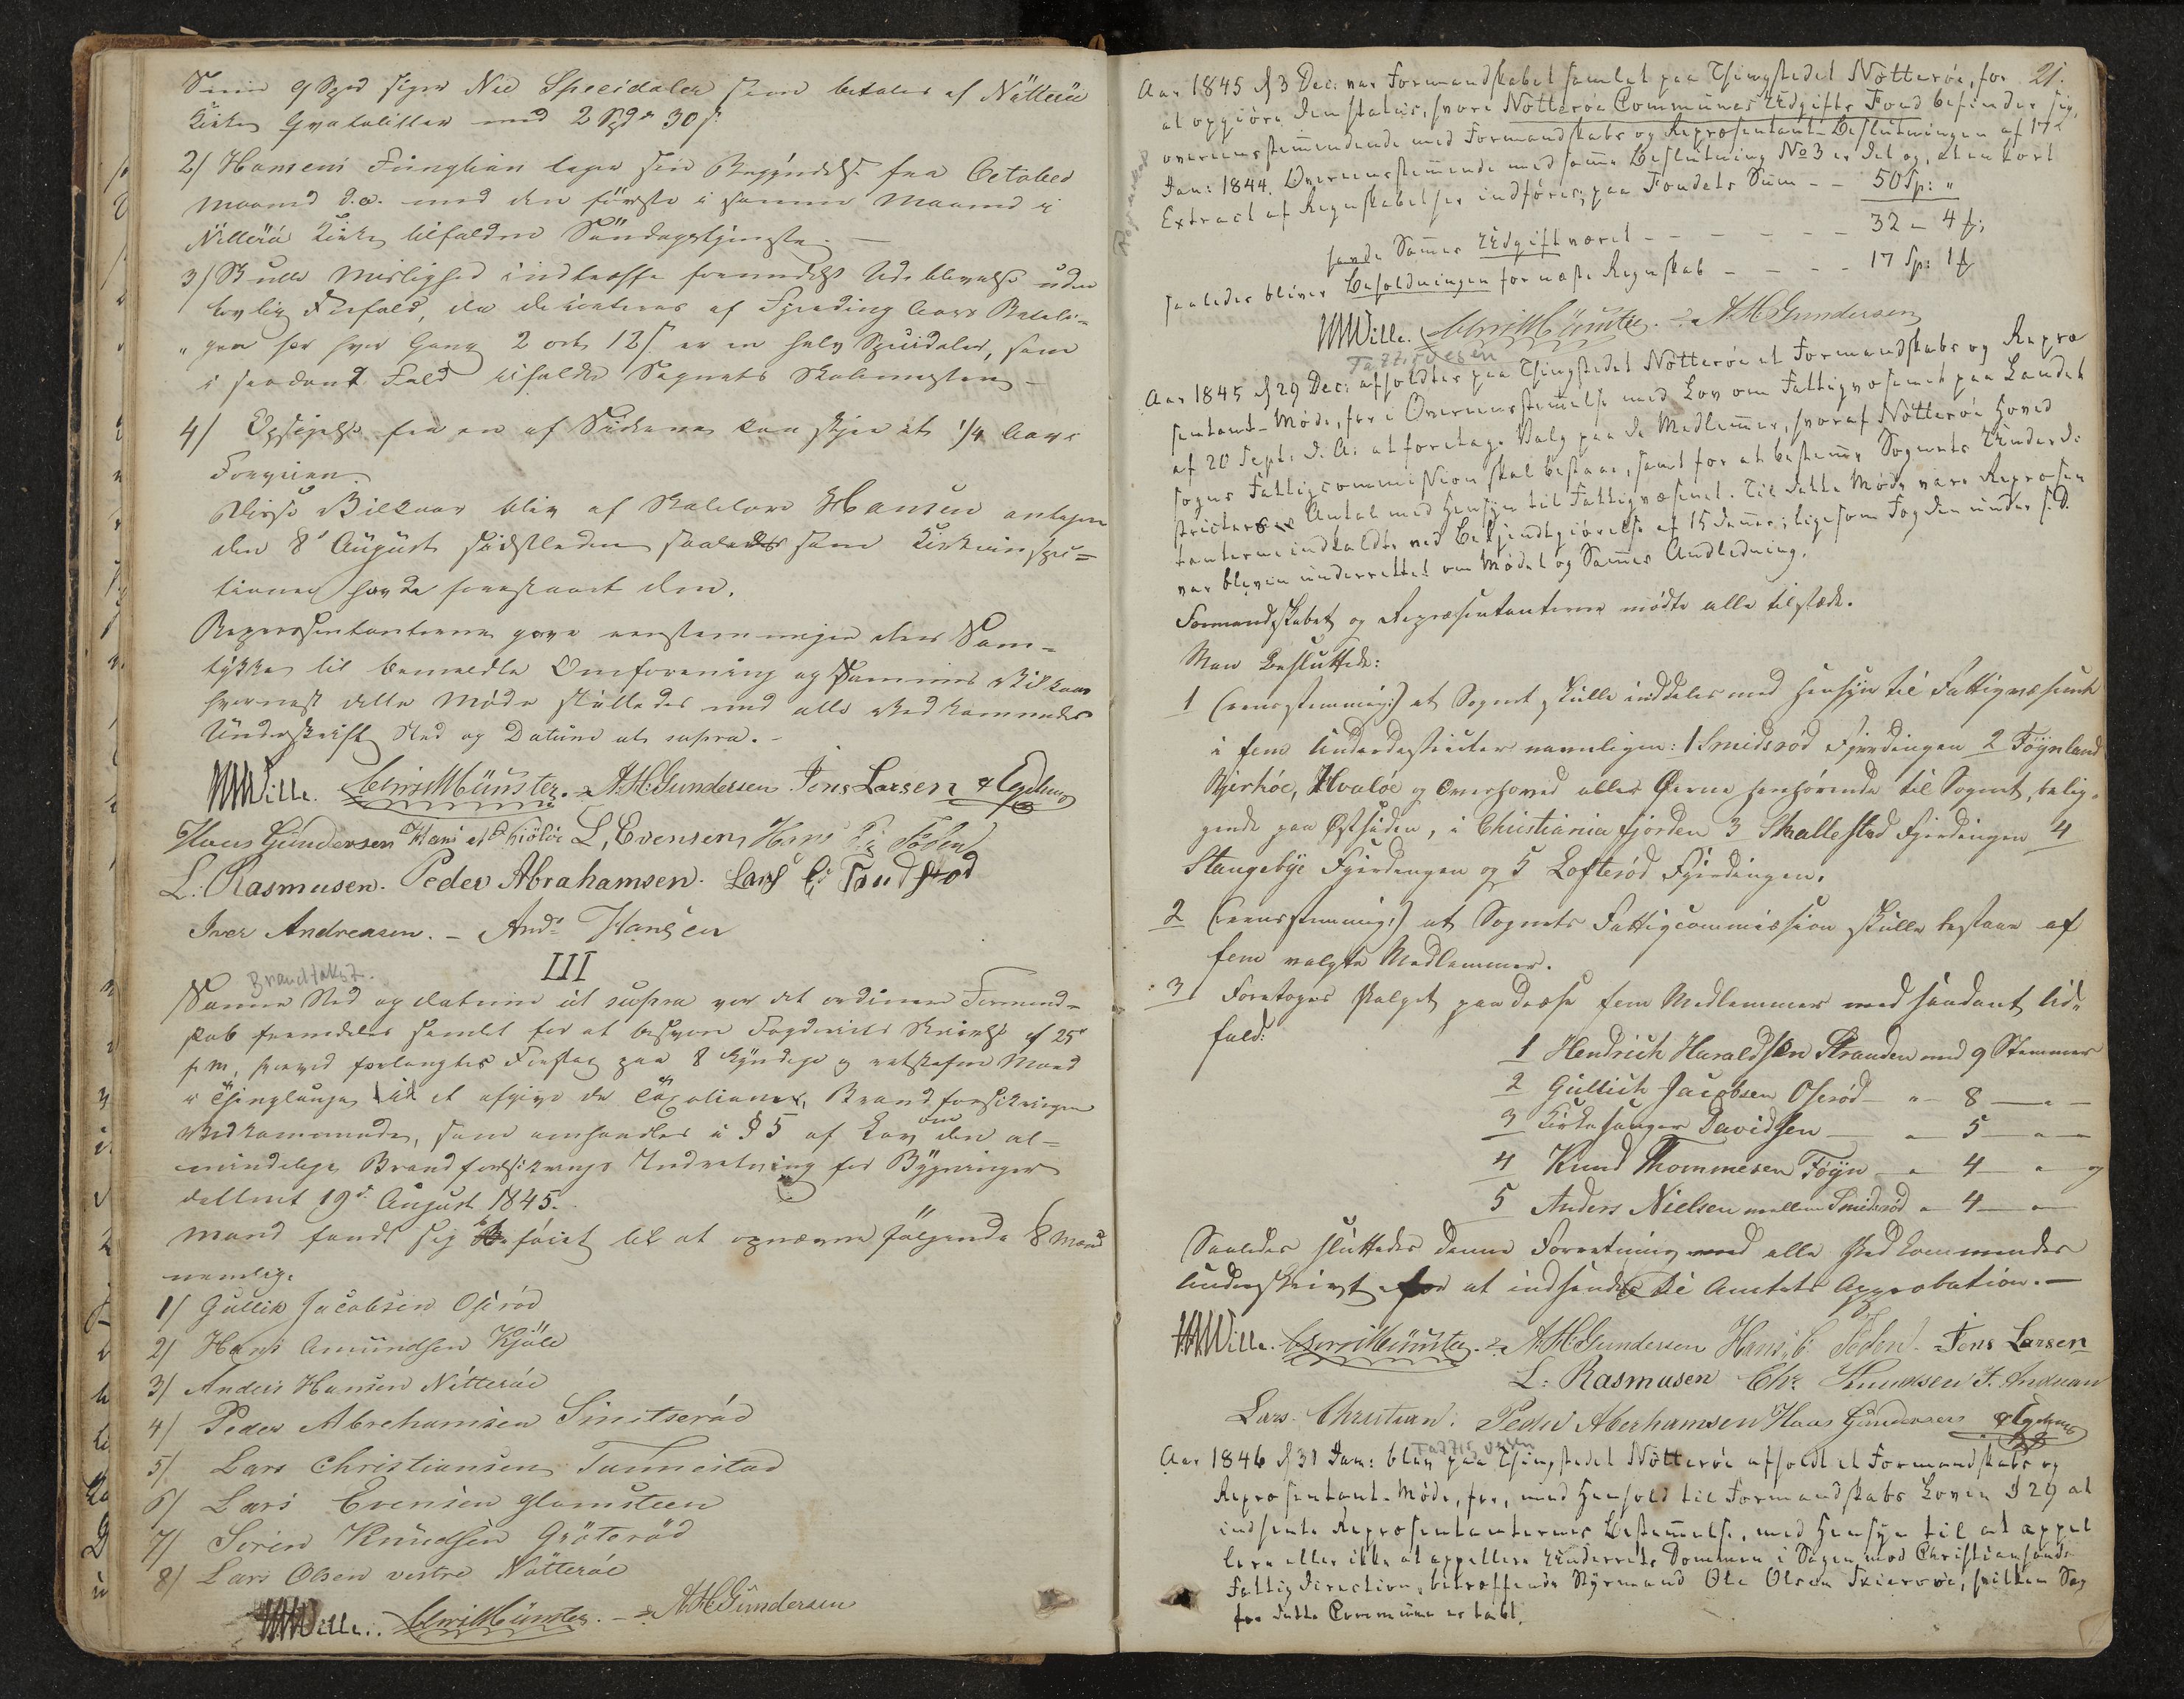 9 Spd siger Nie Speeidaler som betales af Nötteröe
Kirkes med 2 Spdr 30 s
2/ Hansens Fungtion tager sin Begyndelse fra October
Maaned d.a. med den förste i samme Maaned i
Nötteröe Kirke tilfaldne Söndagstjeneste. —
3/ Skulde Mislighed indtræffe formedelst Udeblivelse uden
lovlig Forfald, da af Aars
for hver Gang 2 ort 12 s er en halv Speidaler, som
i saadant Fald tilfalder Sognets Skolemester —
4/ Opsigelse fra en af Siderne kan skje et 1/4 Aars
Forveien.
Disse Vilkaar blev af Skolelærer Hansen antagne
den 8de August sidstleden saaledes som Kirkeinspec=
tionen havde foreslaaet dem.
Repræsentanterne gave eenstemmigen deres Sam=
tykke til bemeldte Omforening og Sammes Vilkaar
hvornæst dette Møde sluttedes med alle Vedkommendes
Underskrift Sted og Datum ut supra. —
HWille. Chr: Münster. A.H.Gundersen Jens Larsen
Hans Gundersen Hans L, Evensen, Hans
L. Rasmusen. Peder Abrahamsen. Lars
Iver Andreasen. — Ands Hansen
III
Brandtakst.
Samme Sted og datum ut supra var det ordinære Formand-
skab fremdeles samlet for at besvare Fogderiets Skrivelse af 25de
f.m., hvorved forlangtes Forslag paa 8 kyndige og retskafne Mænd
i Thinglauget til at afgive de Taxationer, Brandforsikringen
Vedkommende, som omhandles i § 5 af Lov om den al=
mindelige Brandforsikrings Indretning for Bygninger
dateret 19de August 1845.
Mand fandt sig beföiet til at opnævne fölgende 8 Mænd
nemlig.
1/ Gullik Jacobsen Oserød
2/ Hans Amundsen Kjöle
3/ Anders Hansen Nötteröe
4/ Peder Abrehamsen Smitseröd
5/ Lars Christiansen Tanmestad
6/ Lars Evensen Glomsteen
7/ Sören Knudsen Gröteröd
8/ Lars Olsen vestre Nötteröe
HWille. Chr: Münster. — A.H.Gundersen
21.
Aar 1845 d 3 Dec: var Formandskabet samlet paa Thingstedet Nötteröe, for
at opgiöre den status, hvori Nötteröe Communes Udgifts Fond befinder sig,
overeensstemmende med Formandskabs og Repræsentant-Beslutningen af 17de
Jan: 1844. Overeensstemmende med samme Beslutning No 3 er det og, at en kort
Extract af Regnskabet her indföres, paa Fondets Sum - - 50 Sp: "
havde Sammes Udgift været - - - - - - 32 — 4 s;
saaledes bliver Beholdningen for næste Regnskab - - - - 17 Sp: 1
HWille. Chr: Münster. A.H.Gundersen
Fattigvesen
Aar 1845 d 29 Dec: afholdtes paa Thingstedet Nötteröe et Formandskabs og Repræ
sentant-Möde, for i Overeensstemmelse med Lov om Fattigvæsenet paa Landet
af 20 Sept. d. A: at foretage Valg paa de Medlemmer, hvoraf Nötteröe Hoved
sogns Fattigcommission skal bestaae, samt for at bestemme Sognets Underdi
stricters Antal med Hensyn til Fattigvæsenet. Til dette Möde vare Repræsen
tanterne indkaldte ved Bekjendtgjörelse af 15 dennes; ligesom Fogden under s.D.
var bleven underrettet om Mödet og Sammes Anledning.
Formandskabet og Repræsentanterne mødte alle tilstæde.
Man besluttede:
1 (eensstemmig:) at Sognet skulle inddeles med Hensyn til Fattigvæsenet
i fem Underdistricter nemligen: 1 Smidsrød Fjerdingen 2 Föynland
Bjerköe, Hvalöe og overhoved alle Öerne henhörende til Sognet, belig-
gende paa Østsiden, i Christianiafjorden 3 Skallestad Fjerdingen 4
Stangebye Fjerdingen og 5 Lofterød Fjerdingen.
2 (eensstemmig:) at Sognets Fattigcommission skulle bestaae af
fem valgte Medlemmer.
3 Foretoges Valget paa disse fem Medlemmer med saadant Ud-
fald:
1 Hendrich Haraldsen Stranden med 9 Stemmer
2 Gullich Jacobsen Oserød — " — 8 — " —
3 Kirkesanger Davidsen — " — 5 — " —
4 Knud Thommesen Föyn — " — 4 — " — og
5 Anders Nielsen mellem Smidsrød " — 4 — " —
Saaledes sluttedes denne Forretning med alle Vedkommendes
Underskrivt for at indsendes til Amtets Approbation. —
HWille. Chr: Münster. A.H.Gundersen Hans Jens Larsen
L: Rasmusen Chr. Knudsen
Lars Christian: Peder Aberhamsen Hans Gundersen
Fattigvesen
Aar 1846 d 31 Jan: blev paa Thingstedet Nötteröe afholdt et Formandskabs og
Repræsentant-Möde, for, med Henhold til Formandskabs Loven § 29 at
indhente Repræsentanternes Bestemmelse, med Hensyn til at appel
lere eller ikke at appellere Underrets Dommen i Sagen mod Christiansands
Fattigdirection, betræffende Styrmand Ole Olsen hvilken Sag
for dette Commune er tabt.